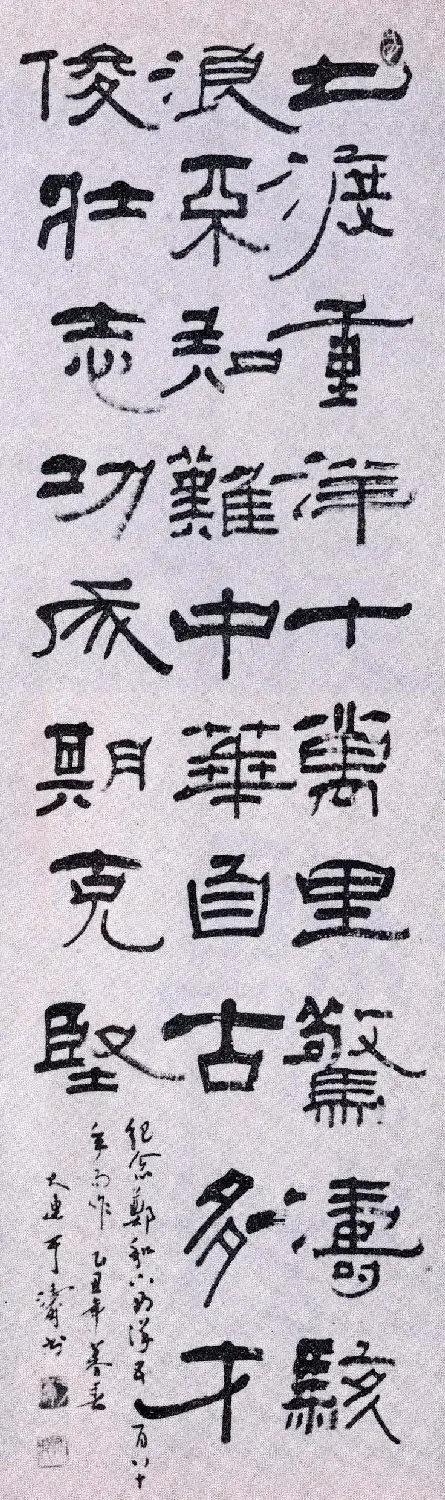 七渡重洋十萬里驚濤駭
浪惡知難中華自古多才
俊壯志功成期克堅
紀念鄭和下西洋五百八十
年而作乙丑年暮春
大連于濤书